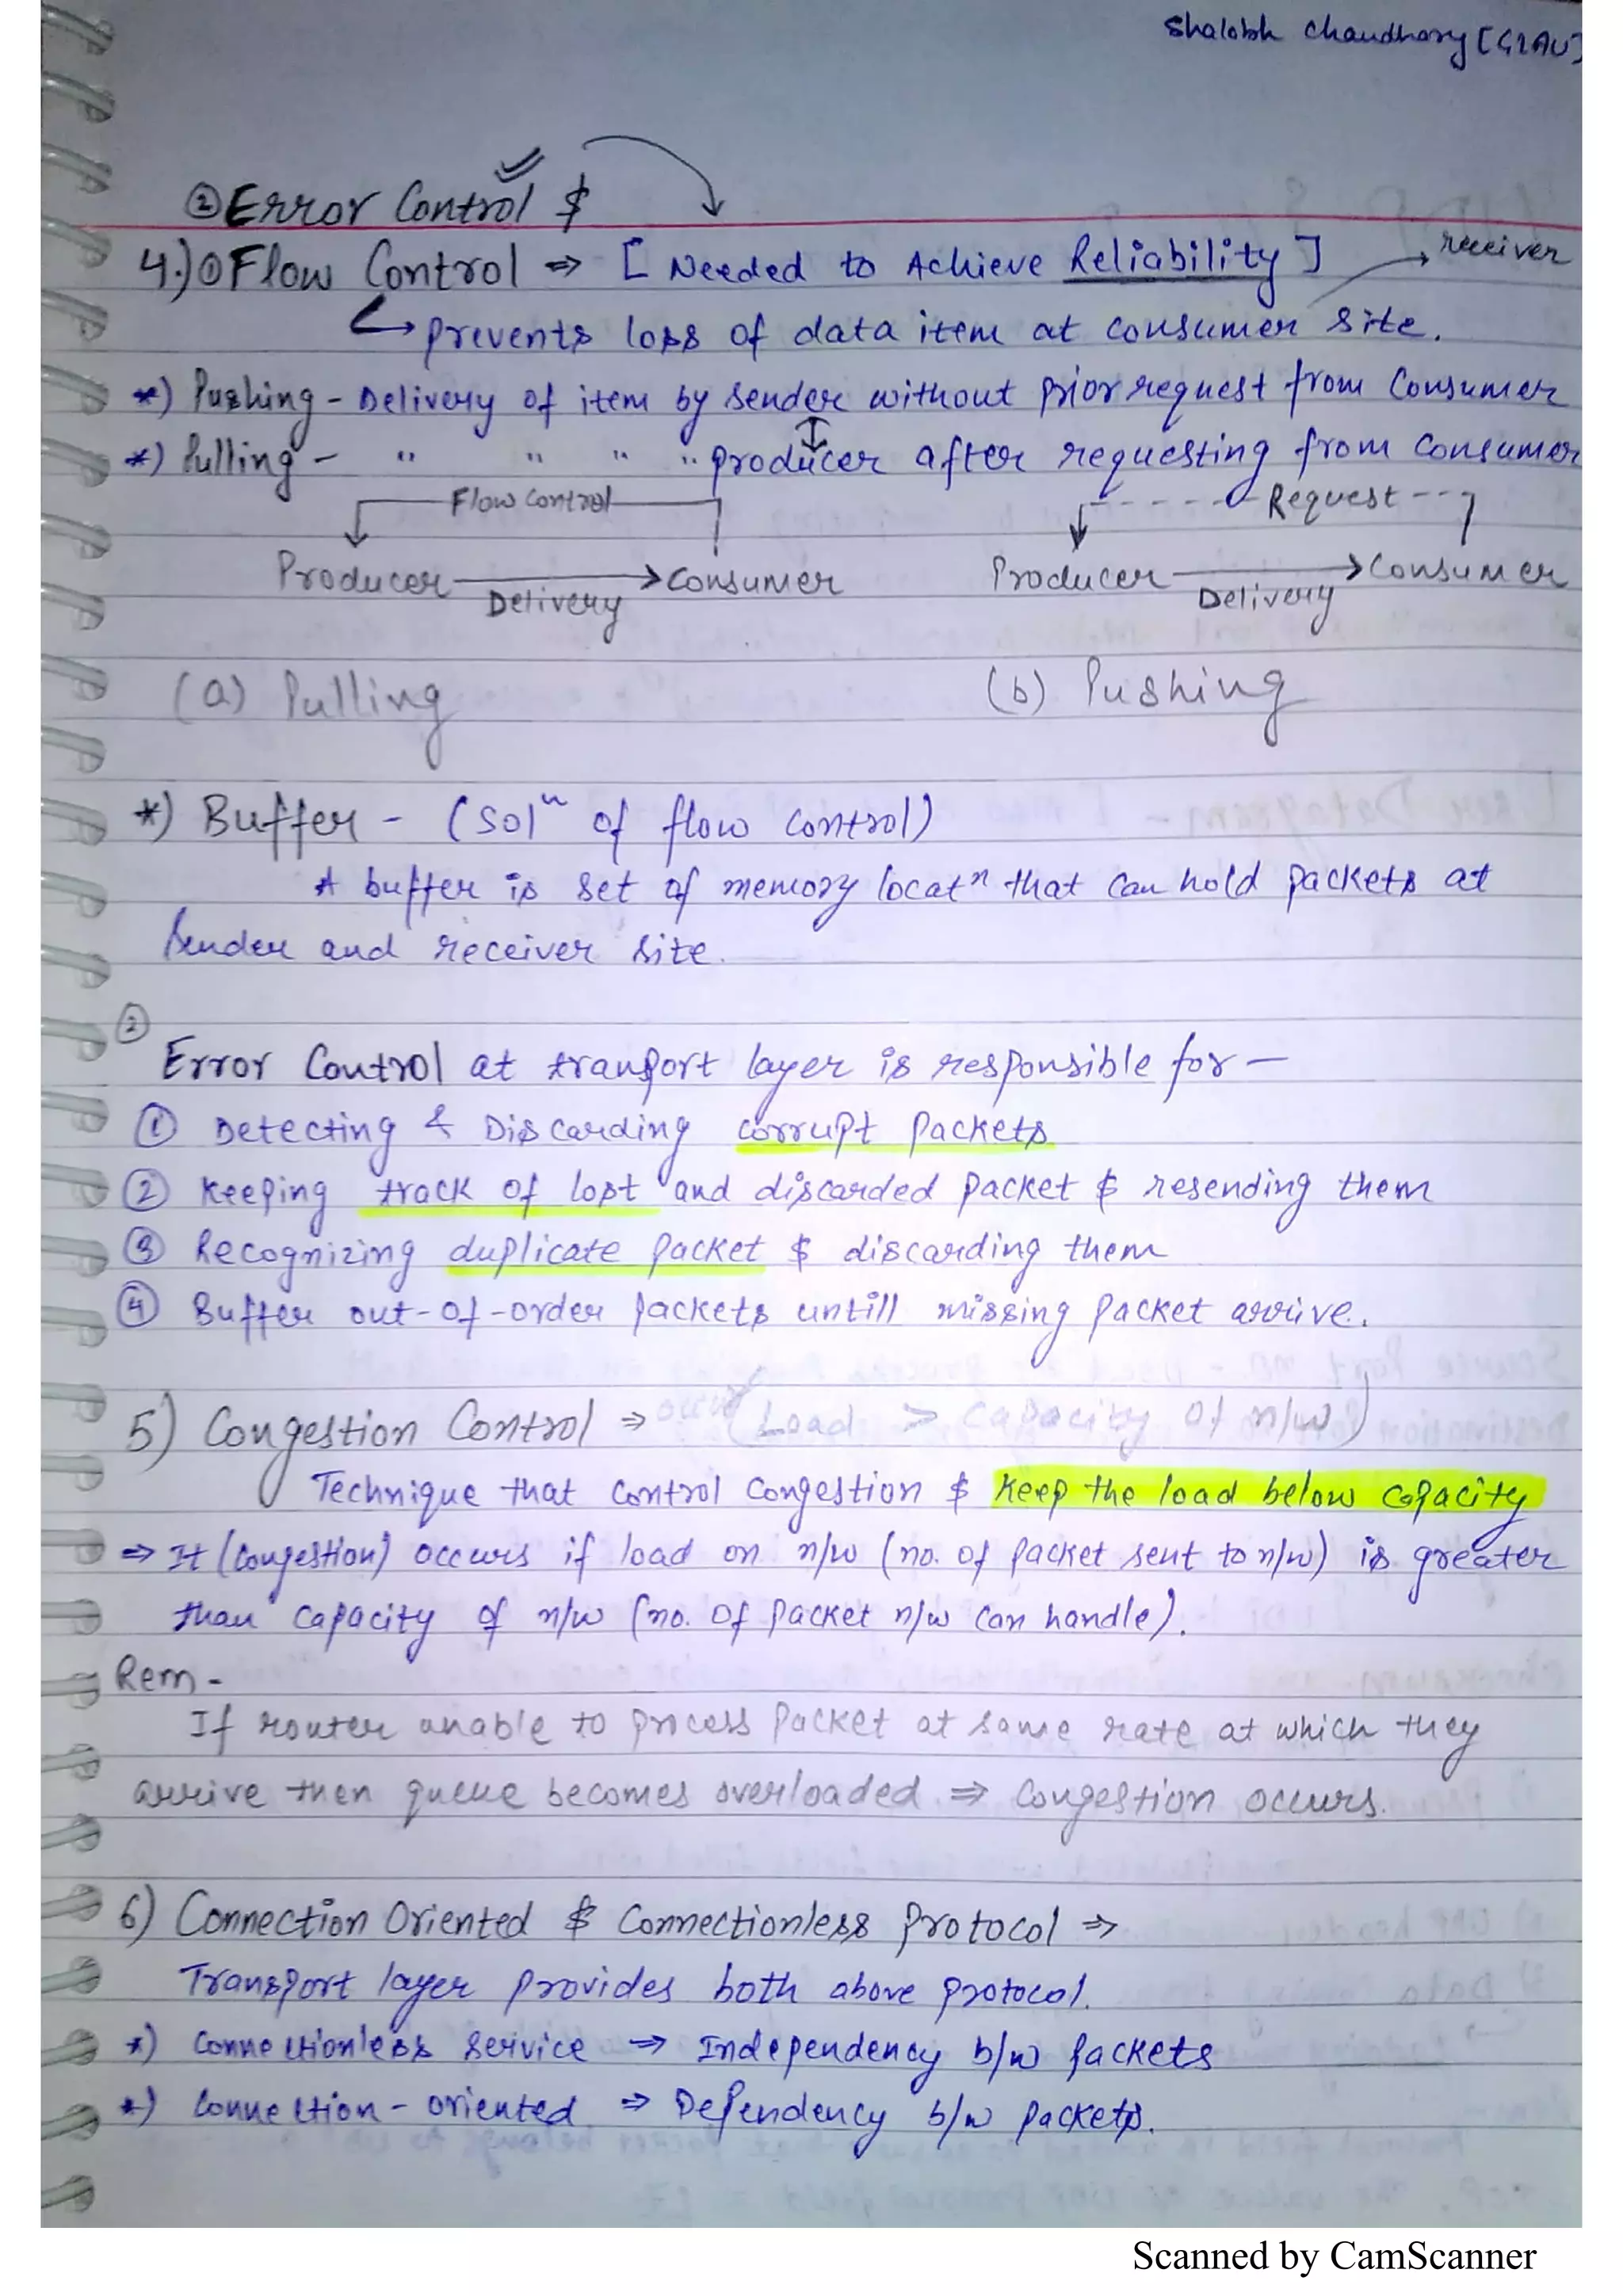 Shalabh Chaudhary [GLAU]
② Error Control &
4.) ① Flow Control ⇒ [ Needed to Achieve Reliability ]
receiver
↳ prevents loss of data item at consumer site.
*) Pushing - Delivery of item by sender without prior request from Consumer
*) Pulling - " " " " producer after requesting from Consumer
Flow Control
Request
Producer → Consumer
Delivery
Producer → Consumer
Delivery
(a) Pulling
(b) Pushing
*) Buffer - (Solⁿ of flow control)
A buffer is set of memory locatⁿ that can hold packets at
sender and receiver site.
②
Error Control at transport layer is responsible for -
① Detecting & Discarding corrupt packets
② Keeping track of lost and discarded packet & resending them
③ Recognizing duplicate packet & discarding them
④ Buffer out-of-order packets untill missing packet arrive.
5) Congestion Control ⇒ (Load > Capacity of n/w)
Technique that control congestion & keep the load below capacity
⇒ It (Congestion) occurs if load on n/w (no. of packet sent to n/w) is greater
than capacity of n/w (no. of packet n/w can handle).
Rem -
If router unable to process packet at same rate at which they
arrive then queue becomes overloaded ⇒ Congestion occurs.
6) Connection Oriented & Connectionless Protocol ⇒
Transport layer provides both above protocol.
*) Connectionless Service ⇒ Independency b/w packets
*) Connection - oriented ⇒ Dependency b/w packets.
Scanned by CamScanner